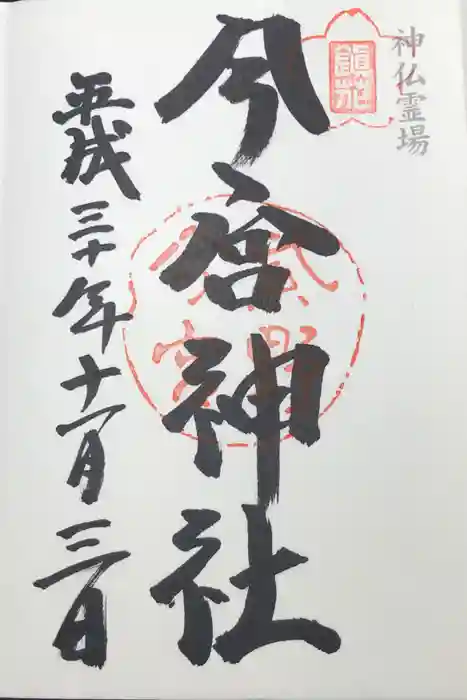 神仏霊場
今宮神社
平成三十年十一月三日